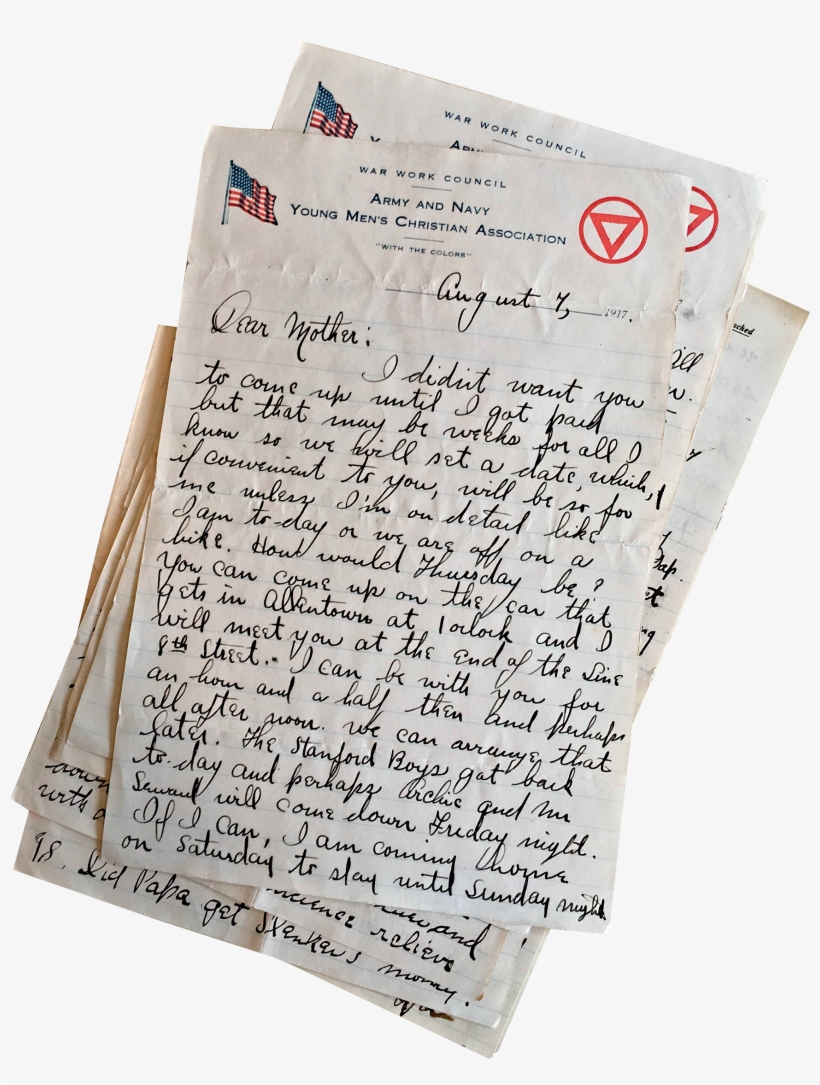 WAR WORK COUNCIL
WAR WORK COUNCIL
ARMY AND NAVY
YOUNG MEN'S CHRISTIAN ASSOCIATION
"WITH THE COLORS"
August 7, 1917.
Dear Mother:
I didn't want you
to come up until I got paid
but that may be weeks for all I
know so we will set a date, which,
if convenient to you, will be so for
me unless I'm on detail like
I am to-day or we are off on a
hike. How would Thursday be?
You can come up on the car that
gets in Allentown at 1 oclock and I
will meet you at the end of the Line
8th Street. I can be with you for
an hour and a half then and perhaps
all after noon. we can arrange that
later. The Stanford Boys got back
to-day and perhaps Archie and
Seward will come down Friday night.
If I can, I am coming home
on Saturday to stay until Sunday night.
with
P.S. Did Papa get money.
and
relieve